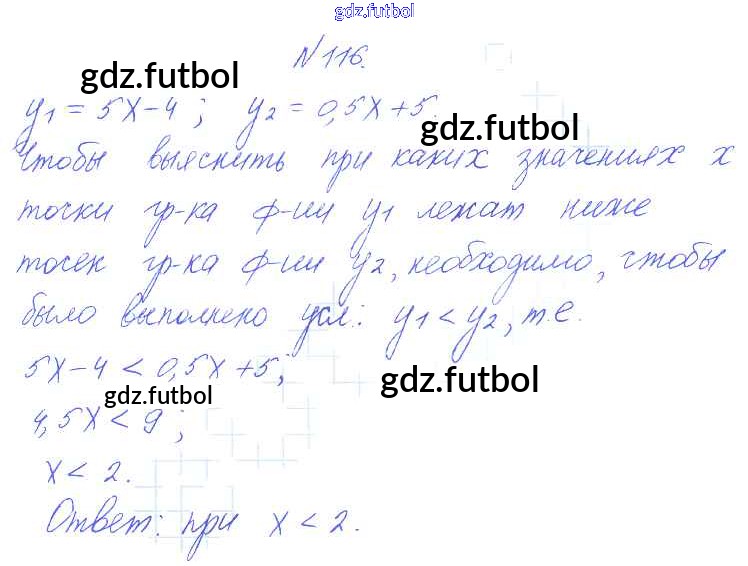 gdz.futbol
N 116.
gdz.futbol
y1 = 5x-4; y2 = 0,5x+5.
gdz.futbol
Чтобы выяснить при каких значениях x
точки гр-ка ф-ии y1 лежат ниже
точек гр-ка ф-ии y2, необходимо, чтобы
было выполнено усл.: y1 < y2, т.е.
5x-4 < 0,5x+5;
gdz.futbol
gdz.futbol
4,5x < 9;
x < 2.
Ответ: при x < 2.